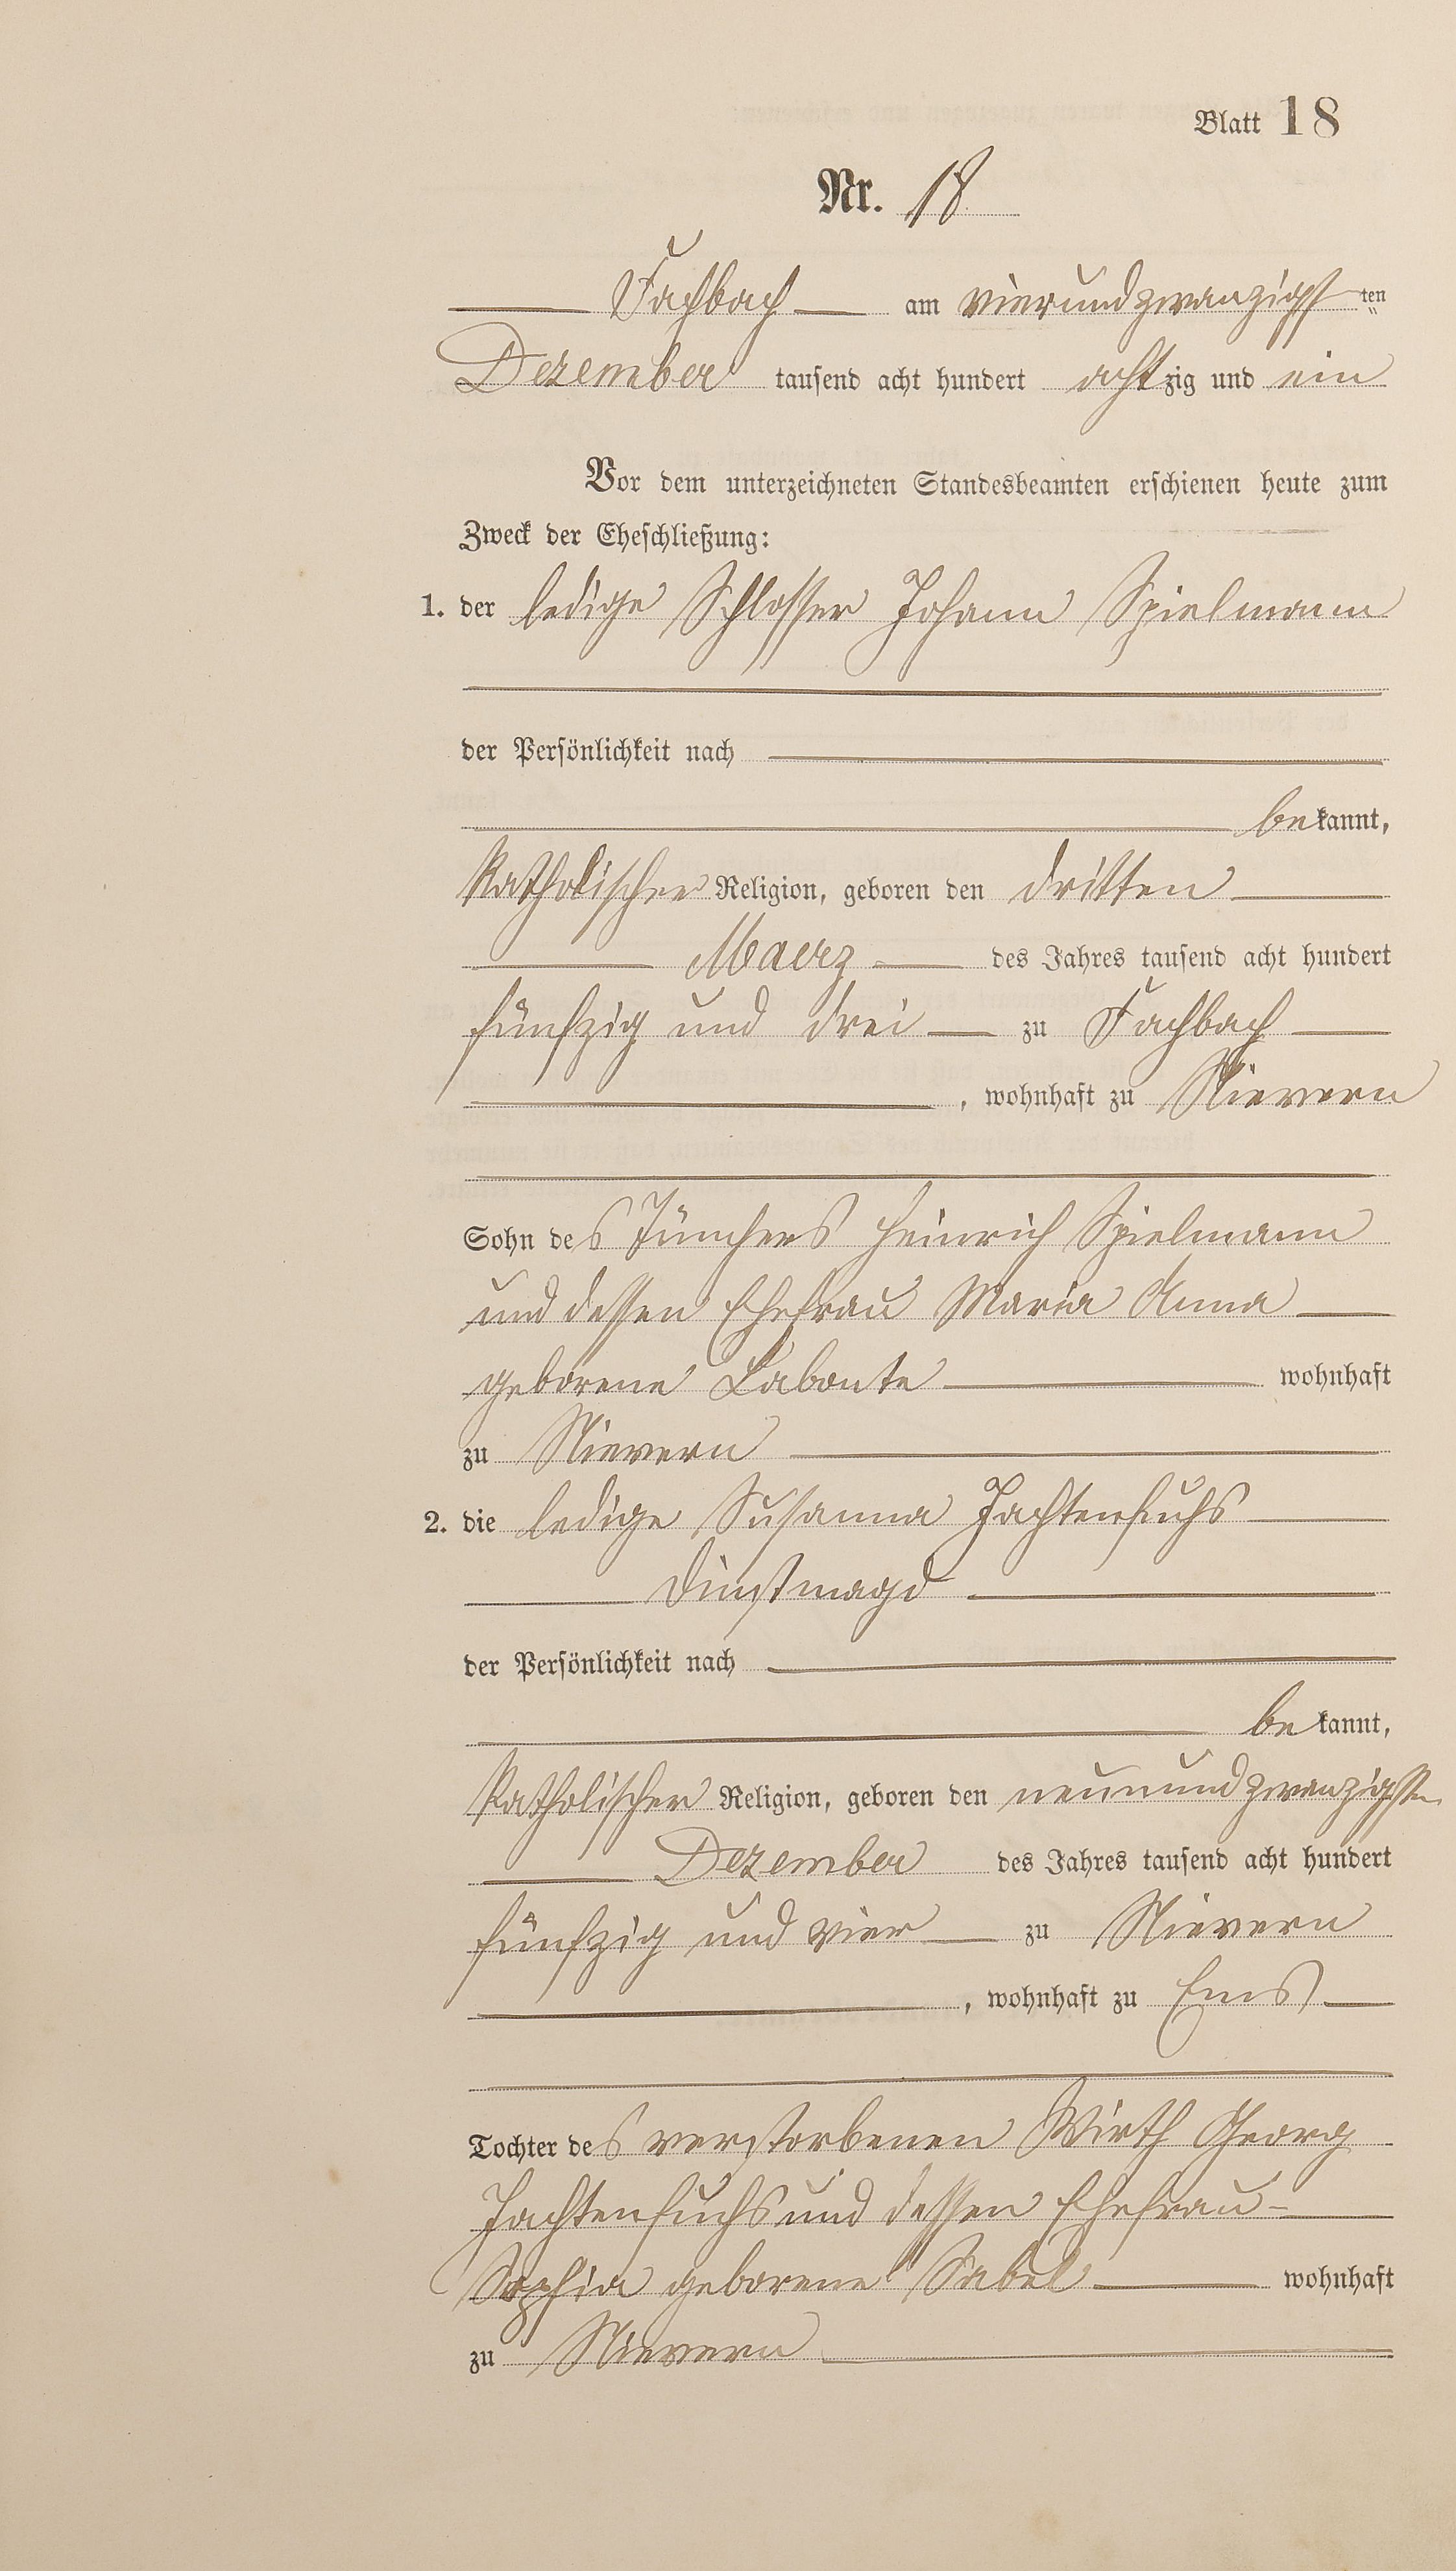 Blatt 18
Nr. 18
Fachbach am vierundzwanzigst ten
Dezember tausend acht hundert achtzig und ein
Vor dem unterzeichneten Standesbeamten erschienen heute zum
Zweck der Eheschließung:
1. der ledige Schlosser Johann Spielmann
der Persönlichkeit nach
bekannt,
Katholischer Religion, geboren den dritten
Maerz des Jahres tausend acht hundert
fünfzig und drei zu Fachbach
, wohnhaft zu Nievern
Sohn des Tünchers Heinrich Spielmann
und dessen Ehefrau Maria Anna
geborene Labonte wohnhaft
zu Nievern
2. die ledige Susanna Jachtenfuchs
Dinstmagd
der Persönlichkeit nach
bekannt,
Katholischer Religion, geboren den neunundzwanzigsten
Dezember des Jahres tausend acht hundert
fünfzig und vier zu Nievern
, wohnhaft zu Ems
Tochter des verstorbenen Wirth Georg
Jachtenfuchs und dessen Ehefrau
Sophia geborene Sabel wohnhaft
zu Nievern